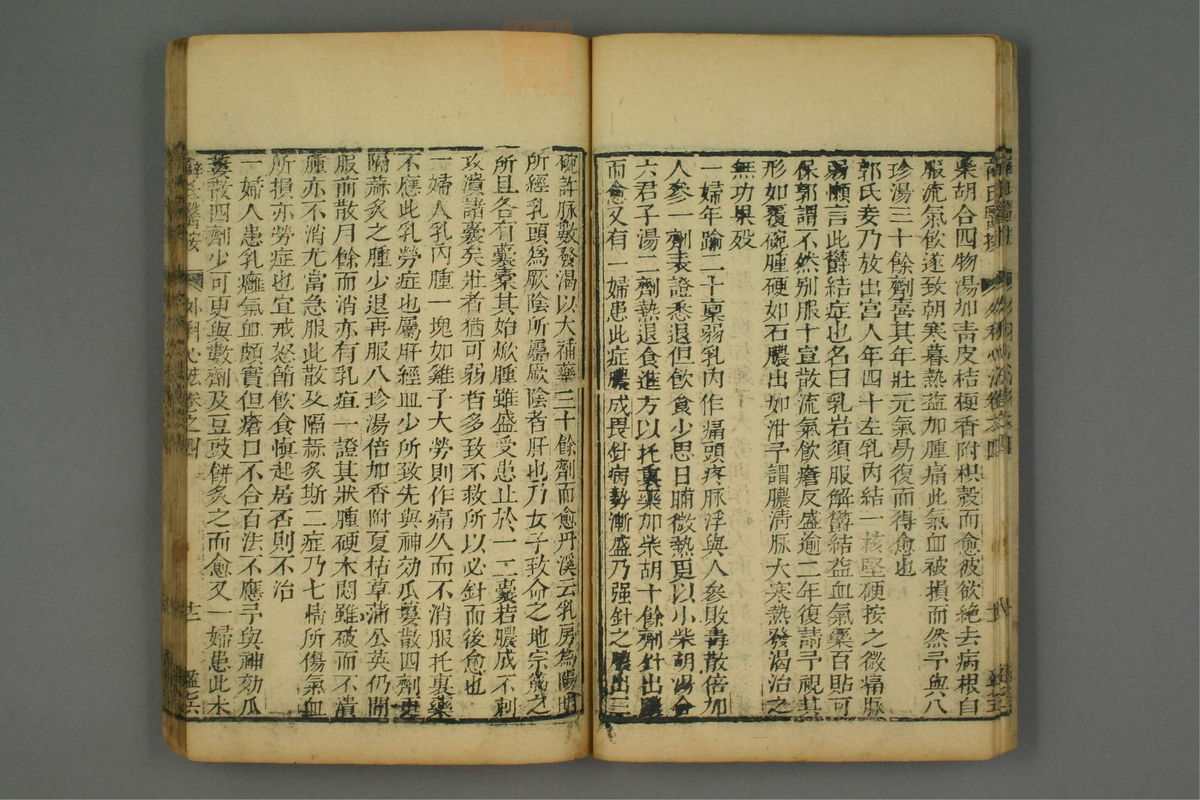 柴胡合四物湯加青皮桔梗香附枳殼而愈彼欲絶去病根自
服流氣飲遂致朝寒暮熱益加腫痛此氣血被損而然予與八
珍湯三十餘劑喜其年壯元氣易復而得愈也
郭氏妾乃放出宮人年四十左乳內結一核堅硬按之微痛脉
弱懶言此欝結症也名曰乳岩須服解欝結益血氣藥百貼可
保郭謂不然別服十宣散流氣飲瘡反盛逾二年復請予視其
形如覆碗腫硬如石膿出如泔予謂膿清脉大寒熱發渴治之
無功果殁
一婦年踰二十禀弱乳內作痛頭疼脉浮與人參敗毒散倍加
人參一劑表證悉退但飲食少思日晡微熱更以小柴胡湯合
六君子湯二劑熱退食進方以托裏藥加柴胡十餘劑針出膿
而愈又有一婦患此症膿成畏針病勢漸盛乃强針之膿出三
碗許脉數發渴以大補藥三十餘劑而愈丹溪云乳房爲陽明
所經乳頭爲厥陰所屬厥陰者肝也乃女子致命之地宗筋之
所且各有囊槖其始焮腫雖盛受患止於一二囊若膿成不刺
攻潰諸囊矣壯者猶可弱者多致不救所以必針而後愈也
一婦人乳內腫一塊如雞子大勞則作痛久而不消服托裏藥
不應此乳勞症也屬肝經血少所致先與神効瓜蔞散四劑更
隔蒜灸之腫少退再服八珍湯倍加香附夏枯草蒲公英仍間
服前散月餘而消亦有乳疽一證其狀腫硬木悶雖破而不潰
腫亦不消尤當急服此散及隔蒜灸斯二症乃七情所傷氣血
所損亦勞症也宜戒怒節飲食愼起居否則不治
一婦人患乳癰氣血頗實但瘡口不合百法不應予與神効瓜
蔞散四劑少可更與數劑及豆豉餅灸之而愈又一婦患此木
薛氏醫按 外科心法卷之四